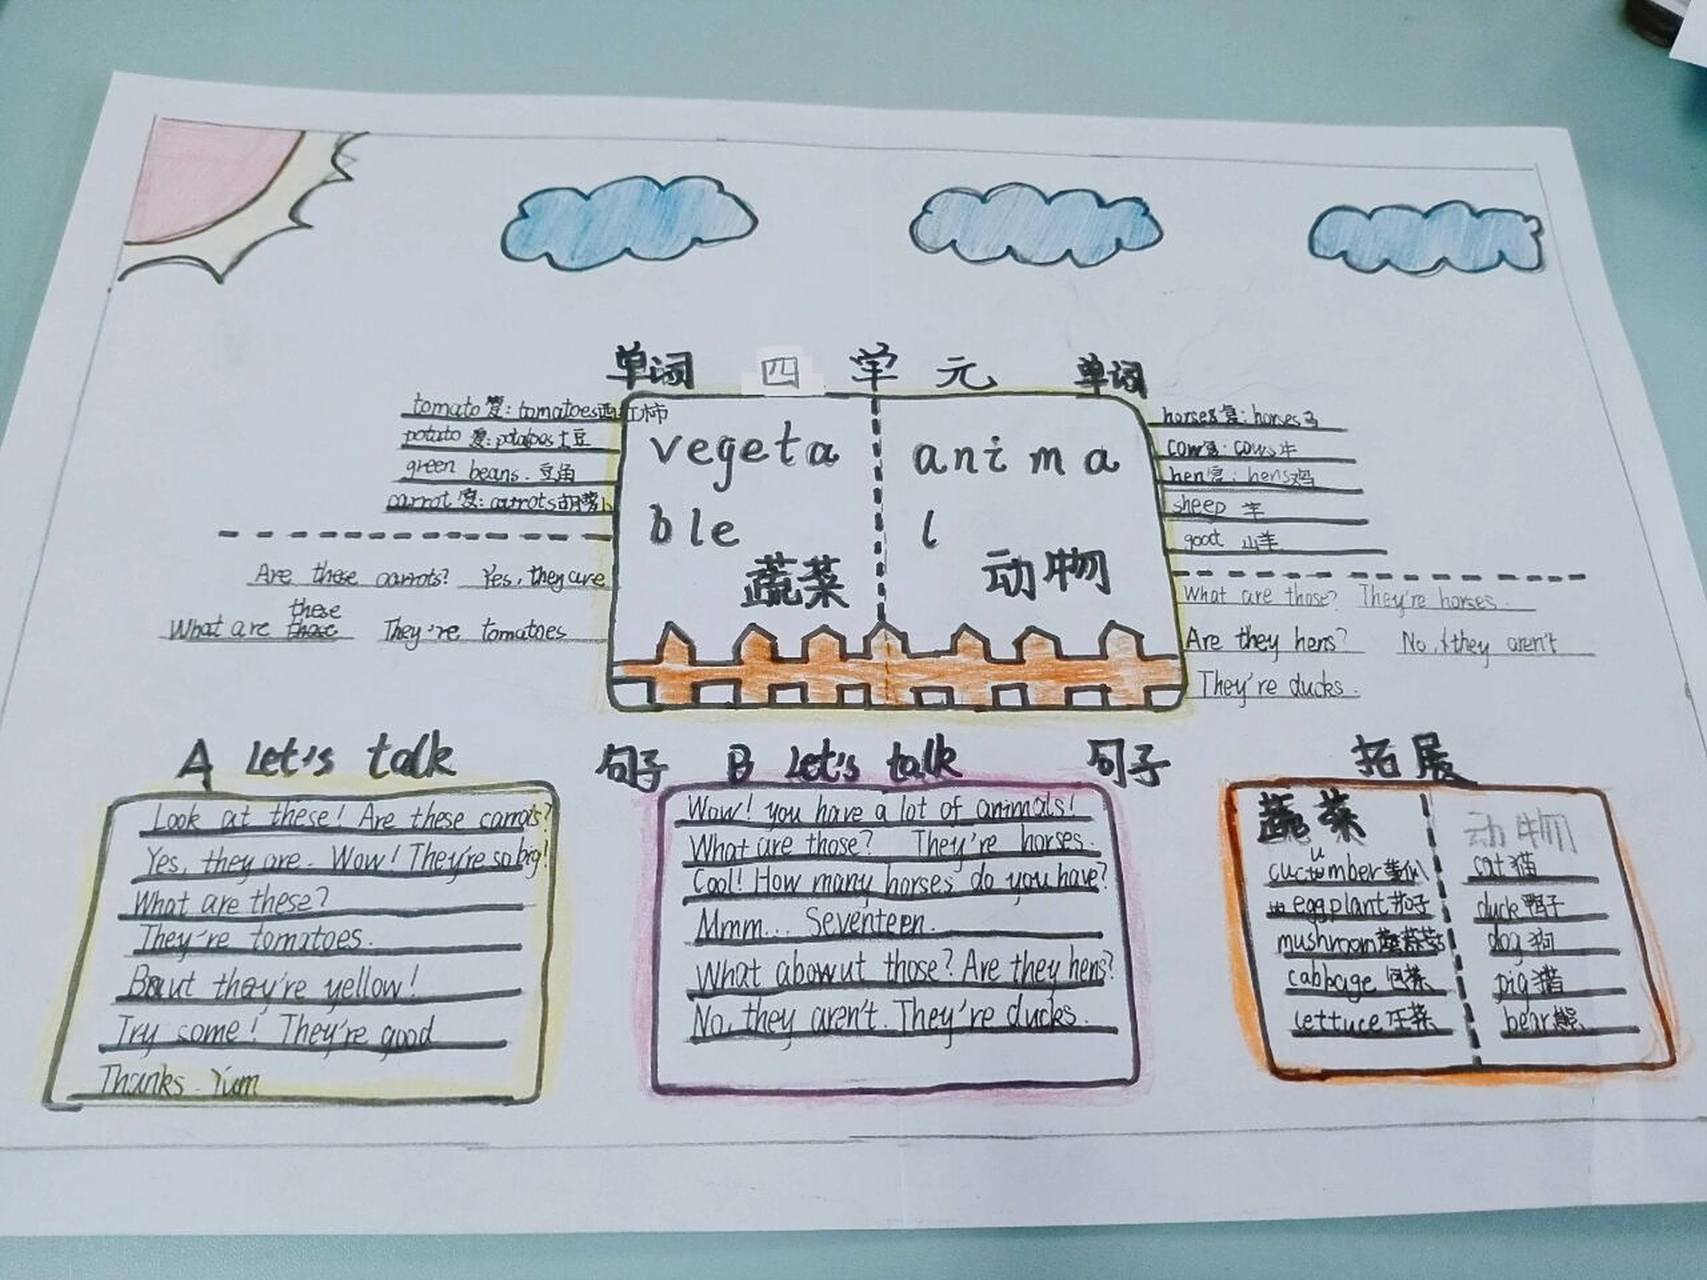 单词 四单元 单词
tomato 复: tomatoes西红柿
potato 复: potatoes土豆
green beans. 豆角
carrot 复: carrots胡萝卜
Are these carrots? Yes, they are
these
What are those They're tomatoes
vegeta
ble
蔬菜
anima
l
动物
horses复: horses马
cow复: cows牛
hen复: hens鸡
sheep 羊
goat 山羊
What are those? They're horses.
Are they hens? No, they aren't
They're ducks.
A Let's talk 句子
Look at these! Are these carrots?
Yes, they are. Wow! They're so big!
What are these?
They're tomatoes.
But they're yellow!
Try some! They're good
Thanks. Yum
B Let's talk 句子
Wow! you have a lot of animals!
What are those? They're horses.
Cool! How many horses do you have?
Mmm... Seventeen.
What abowut those? Are they hens?
No, they aren't. They're ducks.
拓展
蔬菜
cucumber黄瓜
eggplant茄子
mushroom蘑菇
cabbage包菜
lettuce生菜
动物
cat猫
duck鸭子
dog狗
pig猪
bear熊